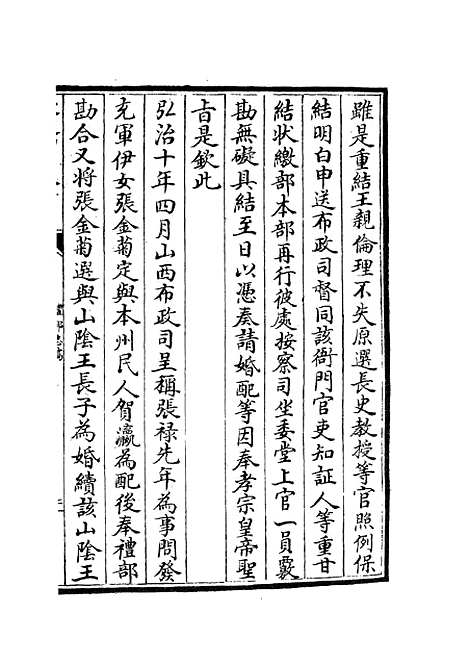 雖是重結王親倫理不失原選長史教授等官照例保
結明白申送布政司督同該衙門官吏知証人等重甘
結狀繳部本部再行彼處按察司坐委堂上官一員覈
勘無礙具結至日以憑奏請婚配等因奉孝宗皇帝聖
旨是欽此
弘治十年四月山西布政司呈稱張祿先年為事問發
充軍伊女張金菊定與本州民人賀瀛為配後奉禮部
勘合又將張金菊選與山陰王長子為婚續該山陰王